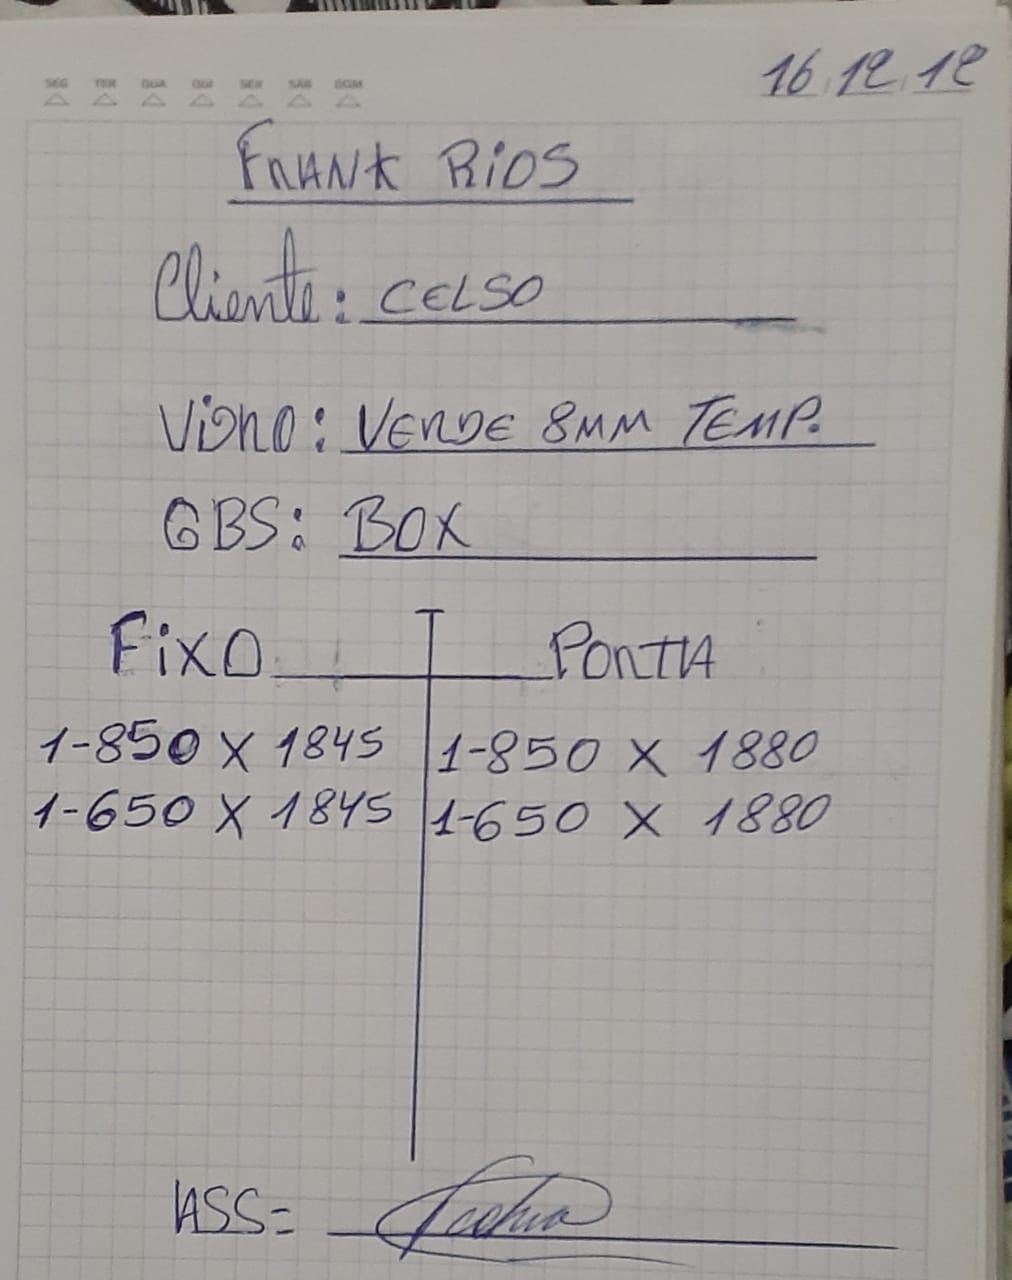 SEG TER QUA QUI SEX SÁB DOM
16.12.12
FRANK RIOS
Cliente: CELSO
Vidro: VERDE 8MM TEMP.
OBS: BOX
FIXO PORTA
1-850 X 1845 1-850 X 1880
1-650 X 1845 1-650 X 1880
ASS=